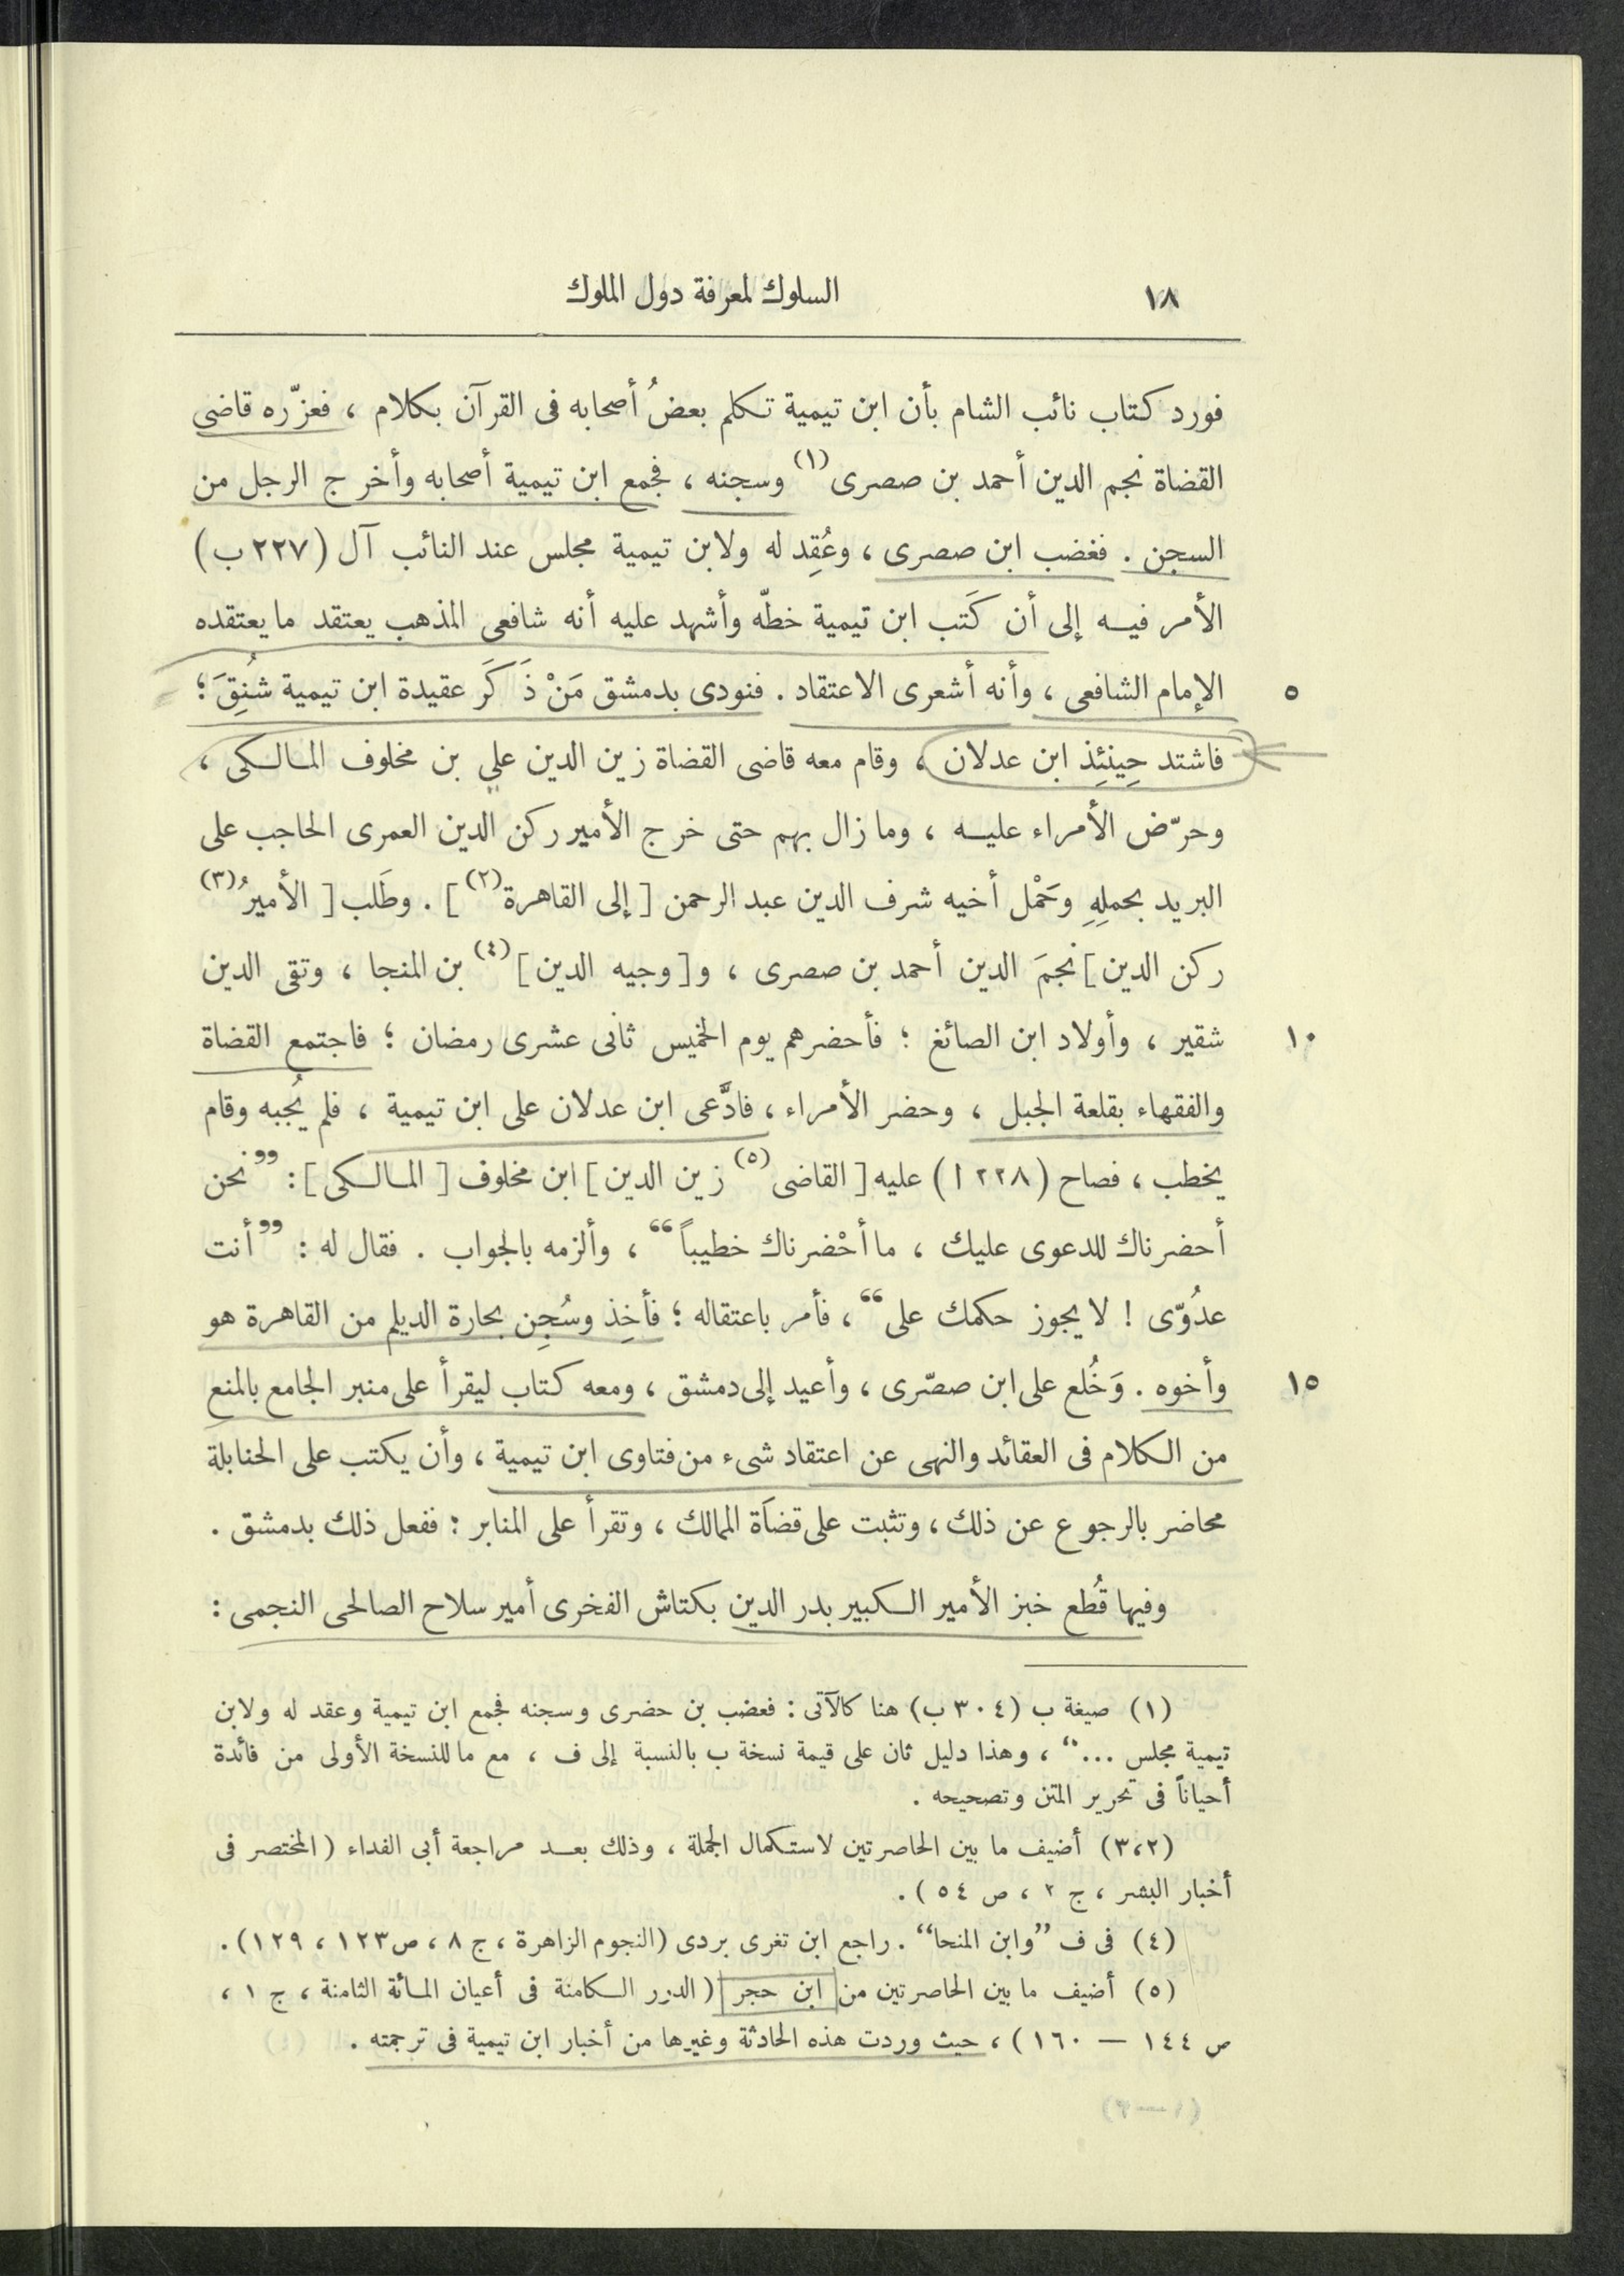 ١٨
السلوك لمعرفة دول الملوك
فورد كتاب نائب الشام بأن ابن تيمية تكلم بعضُ أصحابه فى القرآن بكلام ، فعزّره قاضى
القضاة نجم الدين أحمد بن صصرى (١) وسجنه ، فجمع ابن تيمية أصحابه وأخرج الرجل من
السجن . فغضب ابن صصرى ، وعُقِد له ولابن تيمية مجلس عند النائب آل (٢٢٧ ب)
الأمر فيه إلى أن كَتب ابن تيمية خطّه وأشهد عليه أنه شافعى المذهب يعتقد ما يعتقده
٥ الإمام الشافعى ، وأنه أشعرى الاعتقاد . فنودى بدمشق مَنْ ذَكَرَ عقيدة ابن تيمية شُنِقَ ؛
فاشتد حِينئِذ ابن عدلان ، وقام معه قاضى القضاة زين الدين علي بن مخلوف المالكى ،
وحرّض الأمراء عليه ، وما زال بهم حتى خرج الأمير ركن الدين العمرى الحاجب على
البريد بحملِهِ وحَمْل أخيه شرف الدين عبد الرحمن [ إلى القاهرة (٢) ] . وطَلب [ الأميرُ (٣)
ركن الدين ] نجمَ الدين أحمد بن صصرى ، و[ وجيه الدين ] (٤) بن المنجا ، وتقى الدين
١٠ شقير ، وأولاد ابن الصائغ ؛ فأحضرهم يوم الخميس ثانى عشرى رمضان ؛ فاجتمع القضاة
والفقهاء بقلعة الجبل ، وحضر الأمراء ، فادَّعى ابن عدلان على ابن تيمية ، فلم يُجبه وقام
يخطب ، فصاح (٢٢٨ ا) عليه [ القاضى (٥) زين الدين ] ابن مخلوف [ المالكى ] : ”نحن
أحضرناك للدعوى عليك ، ما أحْضرناك خطيباً“ ، وألزمه بالجواب . فقال له : ”أنت
عدُوّى ! لا يجوز حكمك على“ ، فأمر باعتقاله ؛ فأخِذ وسُجِن بحارة الديلم من القاهرة هو
١٥ وأخوه . وَخُلع على ابن صصّرى ، وأعيد إلى دمشق ، ومعه كتاب ليقرأ على منبر الجامع بالمنع
من الكلام فى العقائد والنهى عن اعتقاد شىء من فتاوى ابن تيمية ، وأن يكتب على الحنابلة
محاضر بالرجوع عن ذلك ، وتثبت على قضاَة الممالك ، وتقرأ على المنابر : ففعل ذلك بدمشق .
وفيها قُطع خبز الأمير الكبير بدر الدين بكتاش الفخرى أمير سلاح الصالحى النجمى :
(١) صيغة ب (٣٠٤ ب) هنا كالآتى : فغضب بن حضرى وسجنه فجمع ابن تيمية وعقد له ولابن
تيمية مجلس ...“ ، وهذا دليل ثان على قيمة نسخة ب بالنسبة إلى ف ، مع ما للنسخة الأولى من فائدة
أحياناً فى تحرير المتن وتصحيحه .
(٣،٢) أضيف ما بين الحاصرتين لاستكمال الجملة ، وذلك بعد مراجعة أبى الفداء (المختصر فى
أخبار البشر ، ج ٢ ، ص ٥٤ ) .
(٤) فى ف ”وابن المنحا“ . راجع ابن تغرى بردى (النجوم الزاهرة ، ج ٨ ، ص ١٢٣ ، ١٢٩) .
(٥) أضيف ما بين الحاصرتين من ابن حجر ( الدرر الكامنة فى أعيان المائة الثامنة ، ج ١ ،
ص ١٤٤ — ١٦٠ ) ، حيث وردت هذه الحادثة وغيرها من أخبار ابن تيمية فى ترجمته .